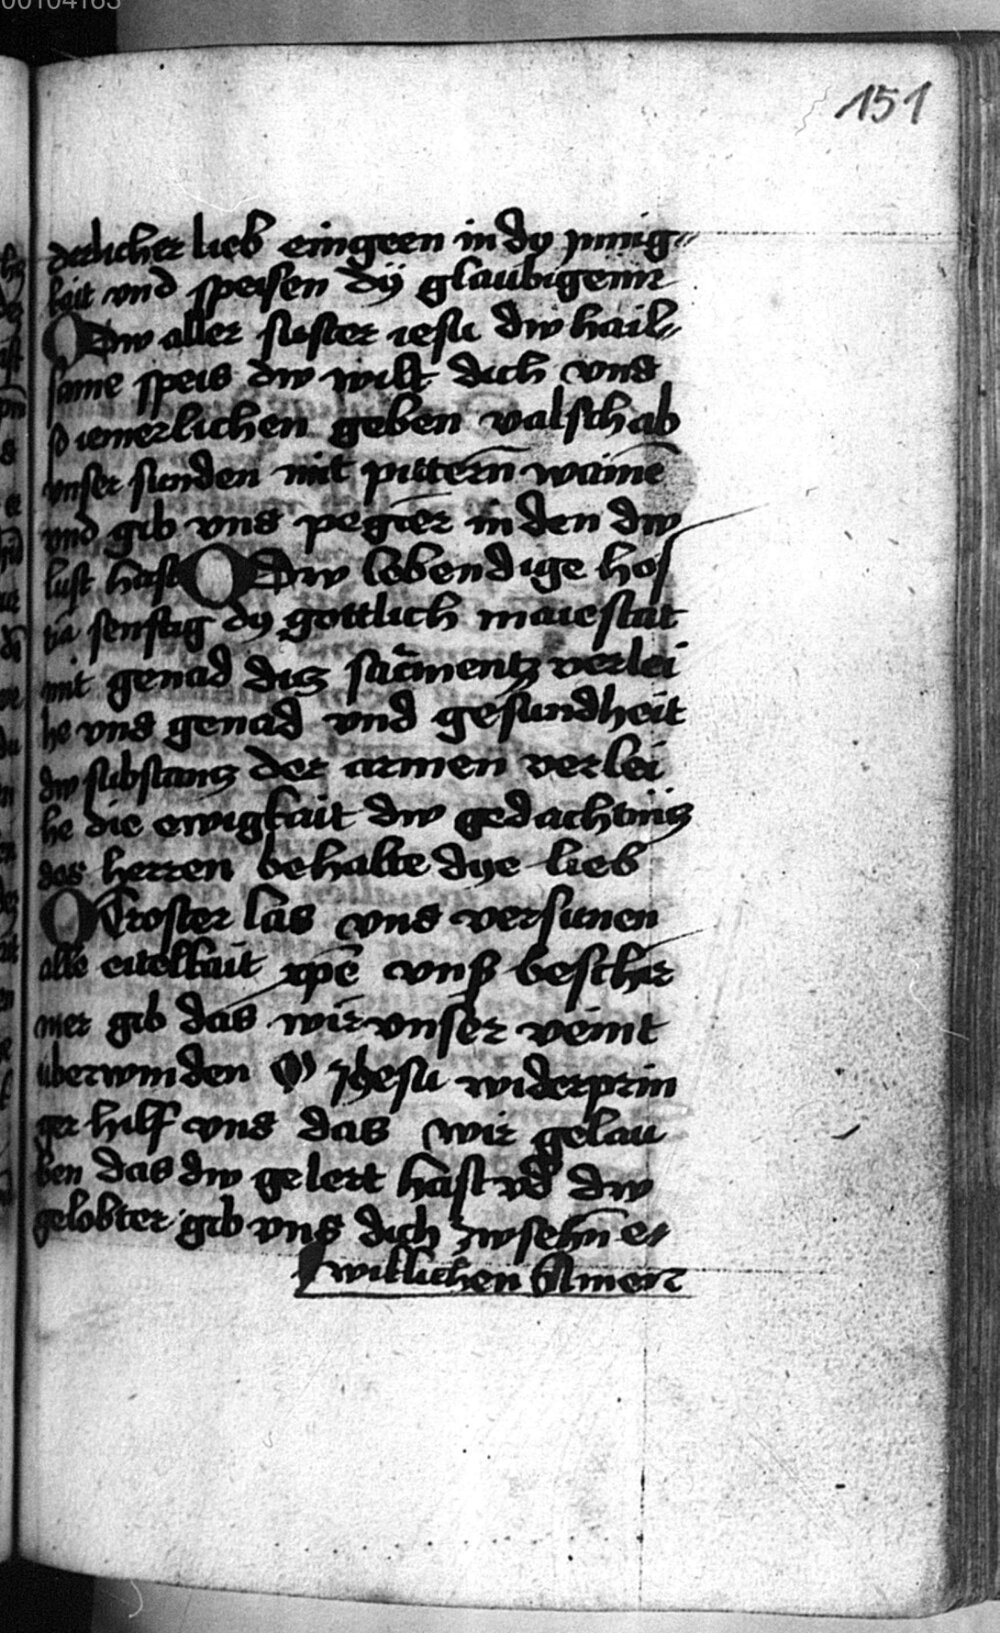 00104163
151
derlicher lieb eingeen in dy jnnig⸗
keit vnd speisen dÿ glaubigenn
O Dw aller suster iesu dw hail⸗
same speis dw wilt dich vns
so iemerlichen geben valsch ab
vnser sunden mit pittern̄ waine̅
vnd gib vns pegier in den dw
lust hast O Dw lebendige hos
tia senftig dy gottlich maiestat
mit genad dicz sacr̄mentz verlei
he vns genad vnd gesundheit
dw substantz der armen verlei
he die ewigkait dw gedachtnüs
des herren behalte dye lieb
O Troster las vns versunen
alle eitelkait xpe̅ vnß beschir
mer gib das wir vnser veint
uberwinden O Jhesu widerprin
ger hilf vns das wir gelau
ben das dw gelert hast vd̄ dw
gelobter gib vns dich zwsehn̄ e⸗
wiklichen Amen